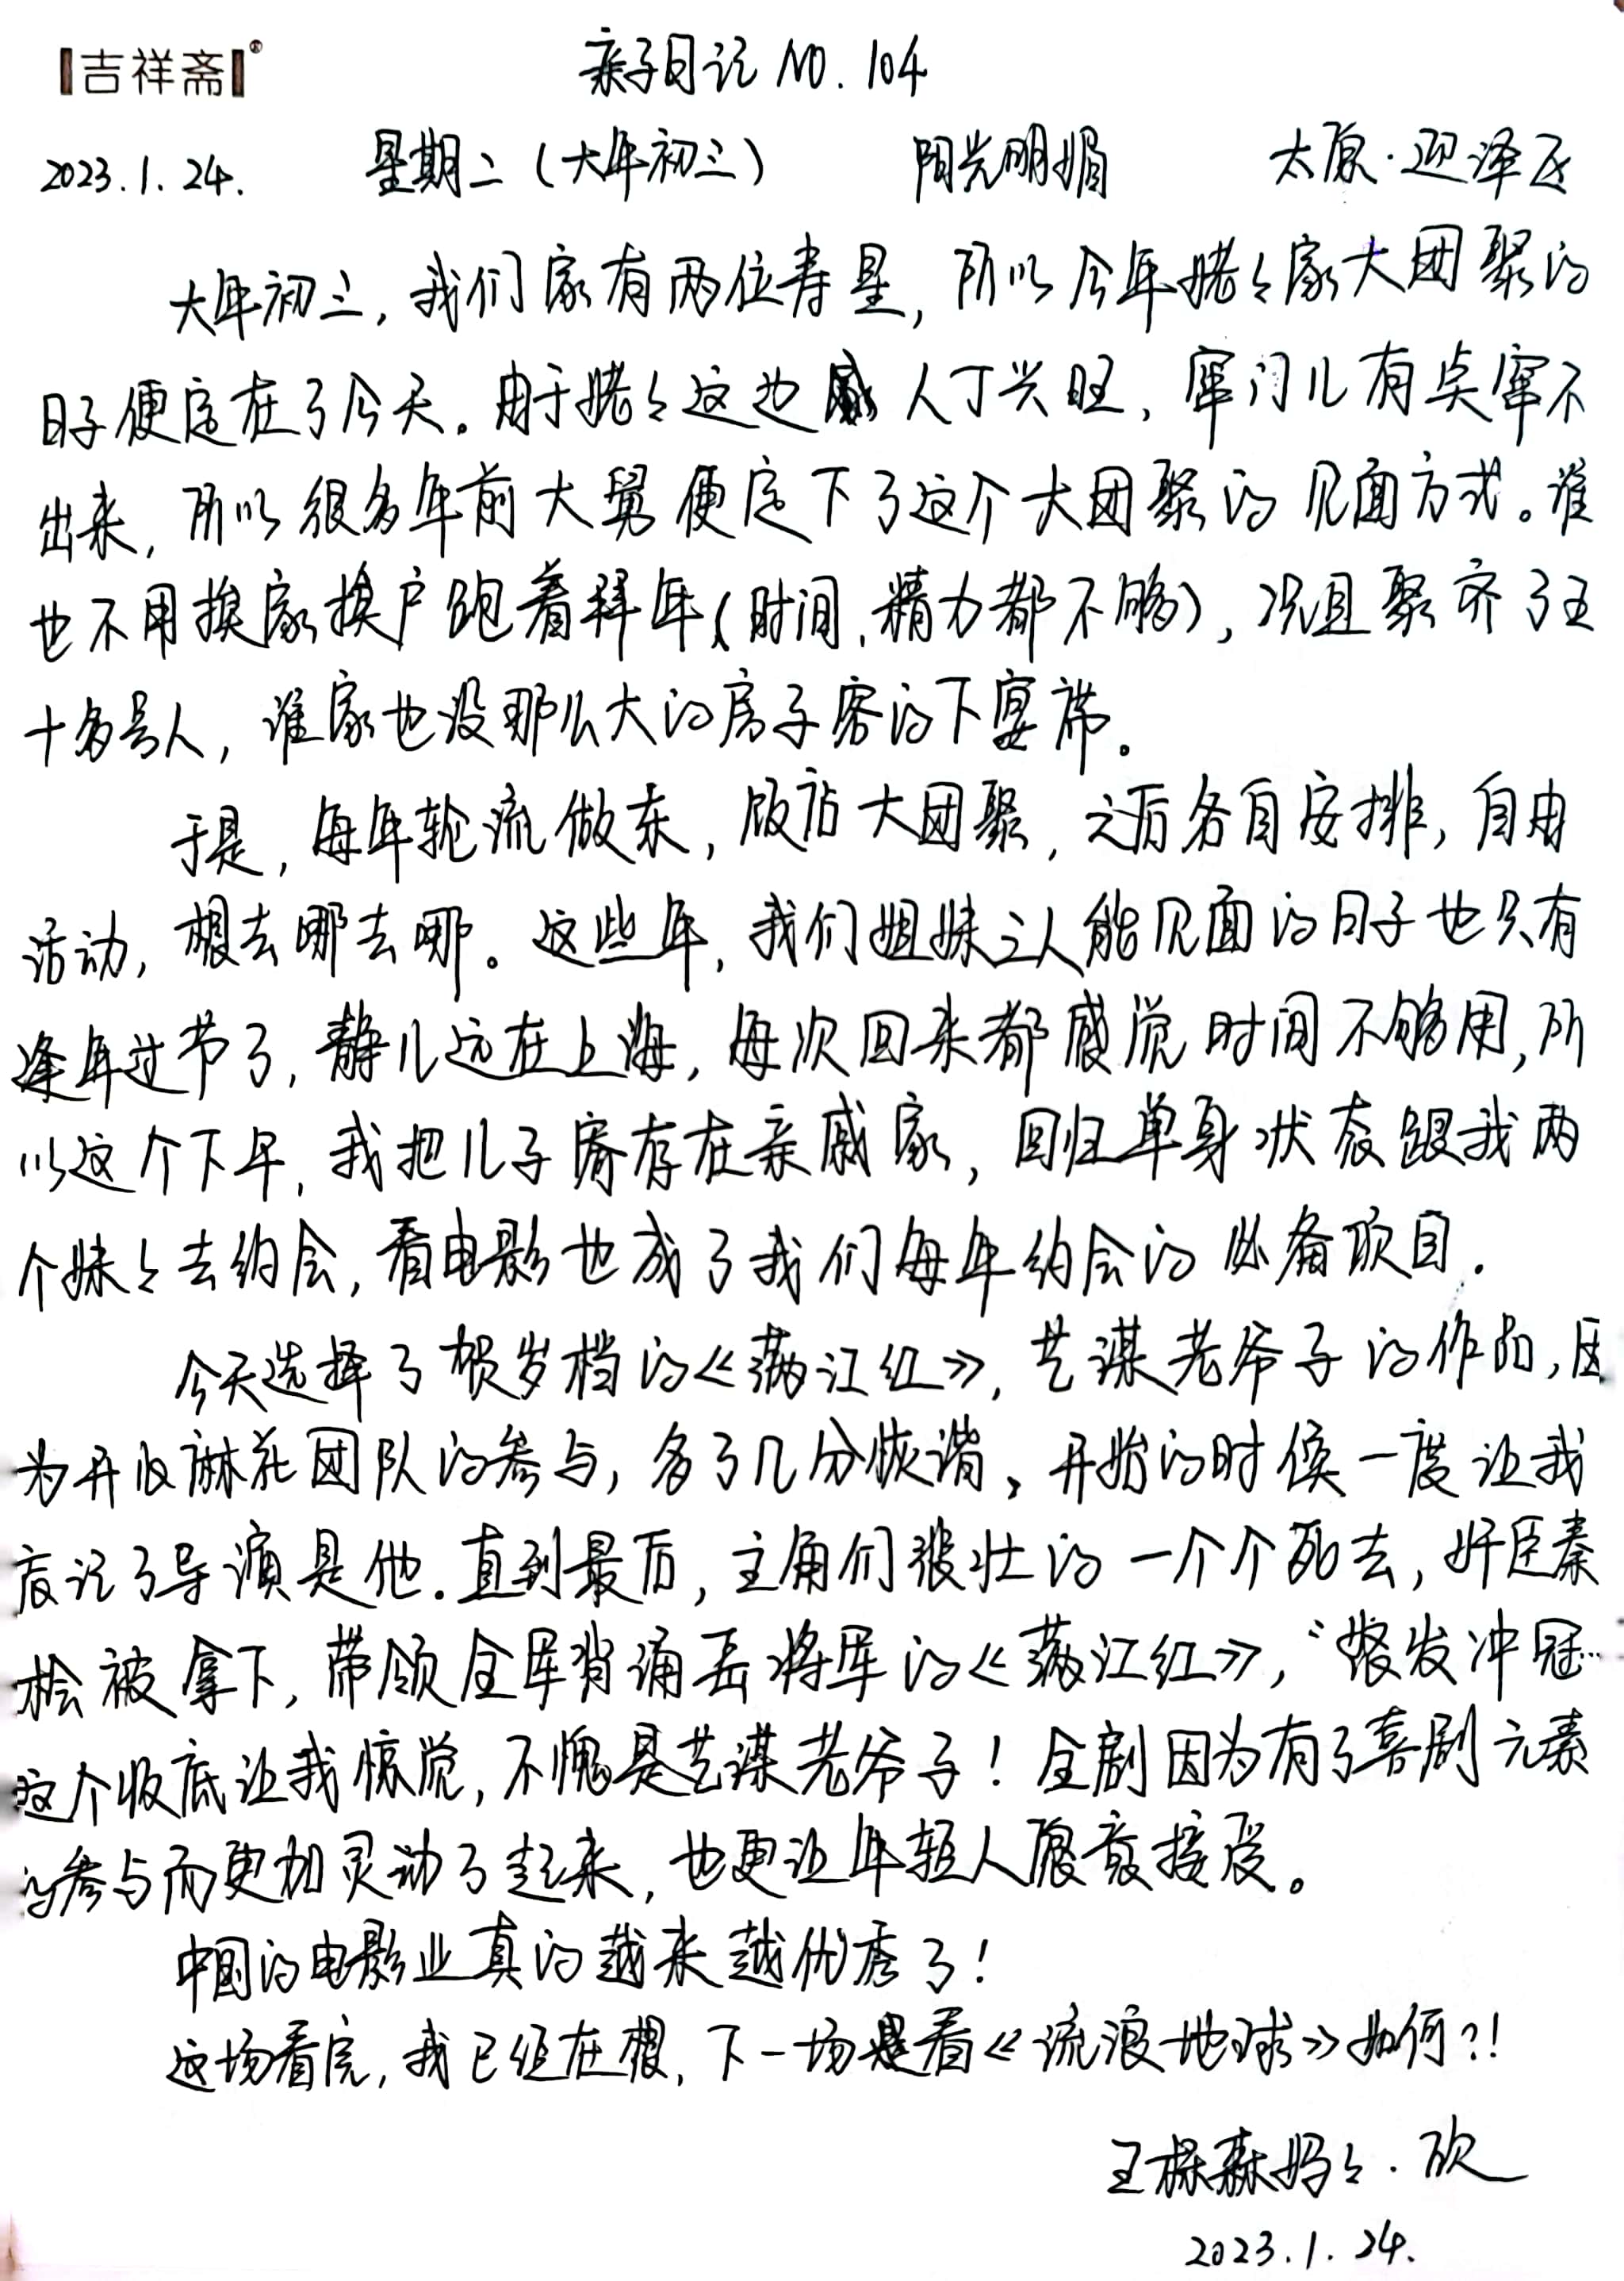 吉祥斋®
亲子日记 NO.104
2023.1.24. 星期二(大年初三) 阳光明媚 太原·迎泽区
大年初三,我们家有两位寿星,所以今年姥々家大团聚的
日子便定在了今天。由于姥々这边 人丁兴旺,窜门儿有点窜不
出来,所以很多年前大舅便定下了这个大团聚的见面方式。谁
也不用挨家挨户跑着拜年(时间,精力都不够),况且聚齐了五
十多号人,谁家也没那么大的房子容的下宴席。
于是,每年轮流做东,饭店大团聚,之后各自安排,自由
活动,想去哪去哪。这些年,我们姐妹三人能见面的日子也只有
逢年过节了,静儿远在上海,每次回来都感觉时间不够用,所
以这个下午,我把儿子寄存在亲戚家,回归单身状态跟我两
个妹々去约会,看电影也成了我们每年约会的必备项目.
今天选择了贺岁档的《满江红》,艺谋老爷子的作品,因
为开心麻花团队的参与,多了几分恢谐,开始的时候一度让我
忘记了导演是他.直到最后,主角们悲壮的一个个死去,奸臣秦
桧被拿下,带领全军背诵岳将军的《满江红》,“怒发冲冠…
这个收底让我惊觉,不愧是艺谋老爷子!全剧因为有了喜剧元素
的参与而更加灵动了起来,也更让年轻人愿意接受。
中国的电影业真的越来越优秀了!
这场看完,我已经在想,下一场是看《流浪地球》如何?!
王 森妈々.欣
2023.1.24.